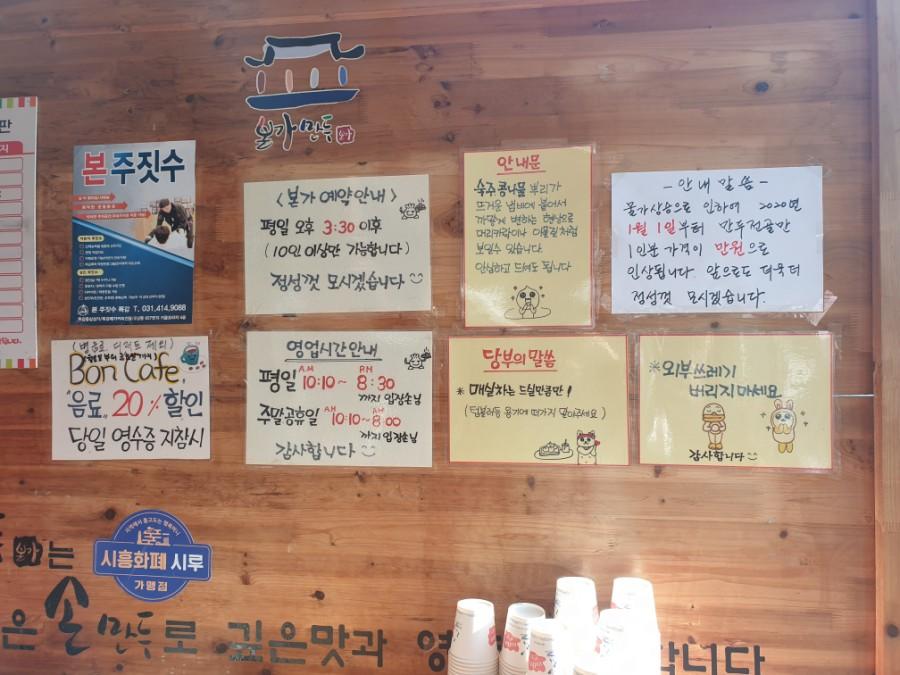 본가만두
판
지
본 주짓수
본 주짓수 특감 T. 031.414.9088
<본가 예약안내>
평일 오후 3:30 이후
(10인 이상만 가능합니다)
정성껏 모시겠습니다
안내문
숙주콩나물 뿌리가
뜨거운 냄비에 들어서
까맣게 변하는 현상으로
머리카락이나 이물질처럼
보일수 있습니다.
안심하고 드셔도 됩니다
-안내 말씀-
물가상승으로 인하여 2020년
1월 1일부터 만두전골만
1인분 가격이 만원으로
인상됩니다. 앞으로도 더욱더
정성껏 모시겠습니다.
(병음료 디저트 제외)
Bon Cafe,
"음료" 20% 할인
당일 영수증 지참시
영업시간안내
평일 AM 10:10~ PM 8:30
까지 입장손님
주말공휴일 AM 10:10~ PM 8:00
까지 입장손님
감사합니다
당부의 말씀
* 매실차는 드실만큼만!
(텀블러등 용기에 떠가지 말아주세요)
*외부쓰레기
버리지 마세요.
감사합니다
본가는
지역에서 돌고도는 행복머니
시흥화폐 시루
가맹점
은 손만두로 깊은맛과 영
합니다